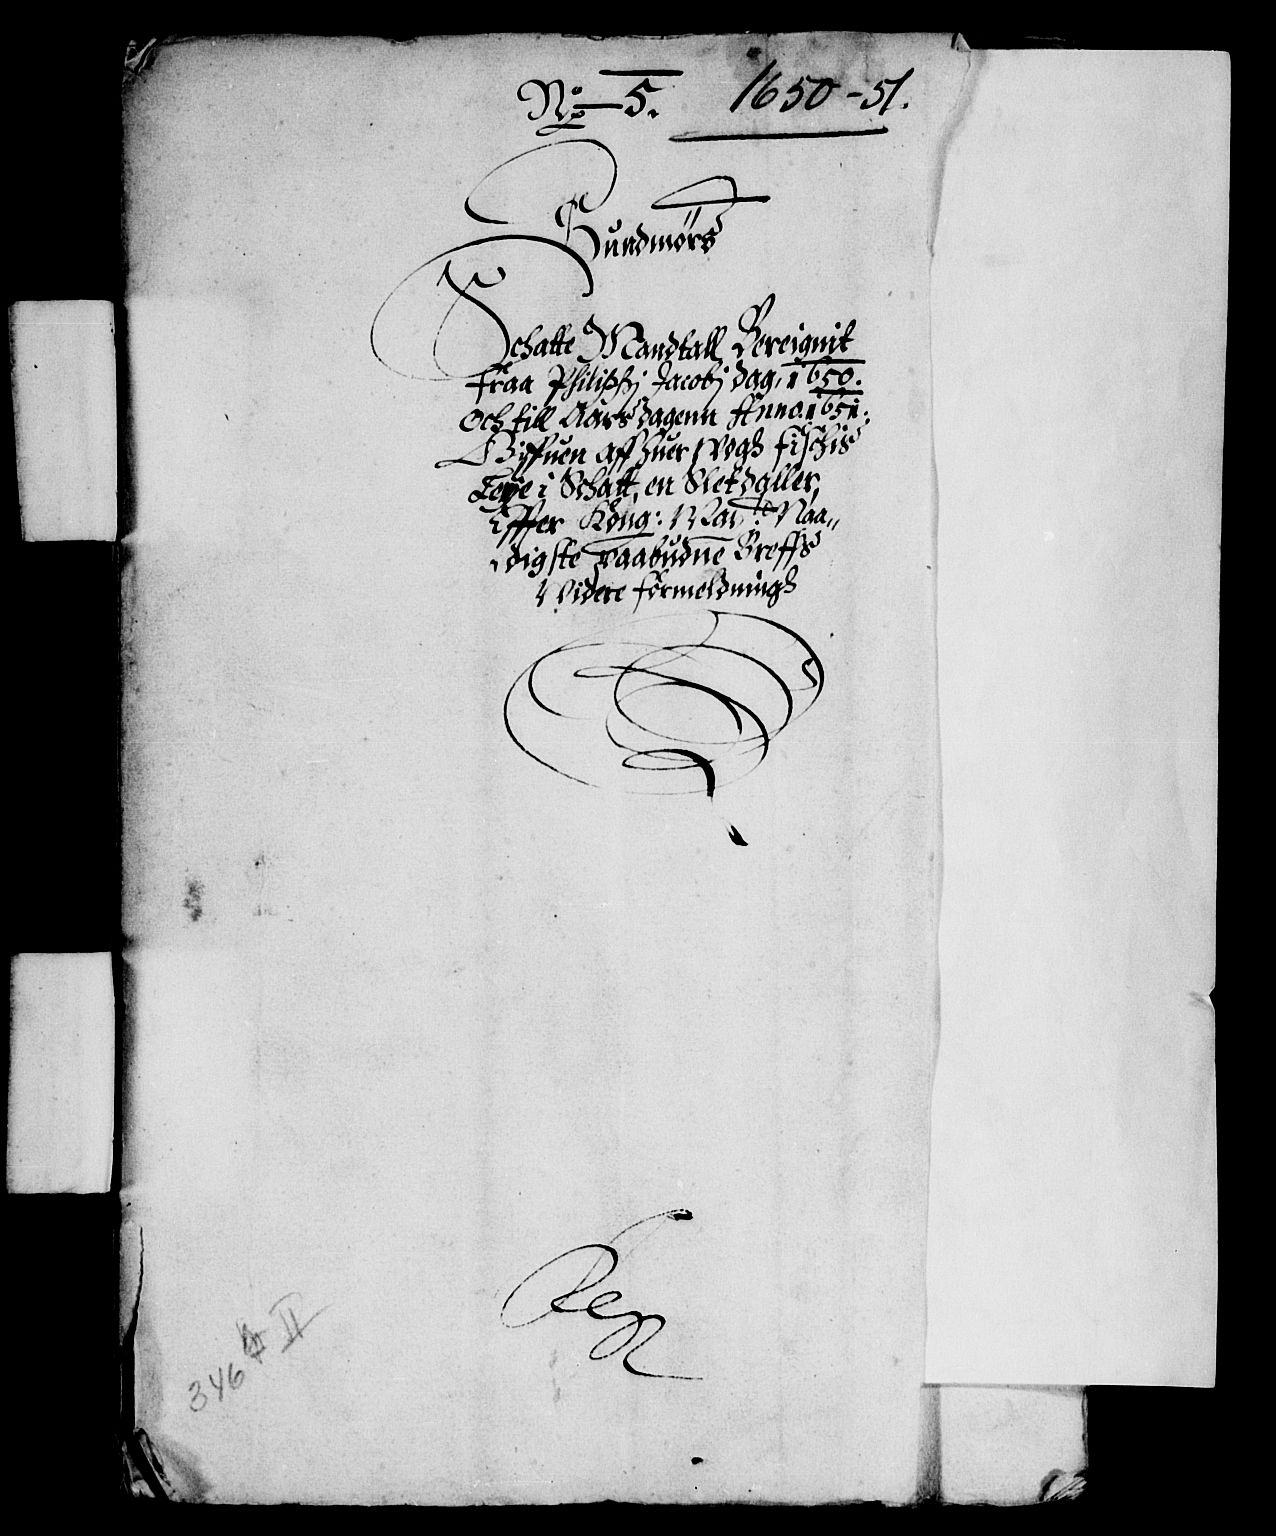 No 5. 1650-51.
Sundmörs
Schatte Mandtall Bereignit
fraa Philippi Jacobi dag, 1650.
och till Aarsdagenn Anno. 1651:
Giffuen aff huer Wogh fischis
Leye i Schatt, en Sletdaller,
effter Kong: May.tz Naa„
digste paabudne Breffs
Widere formeldningh
346 II